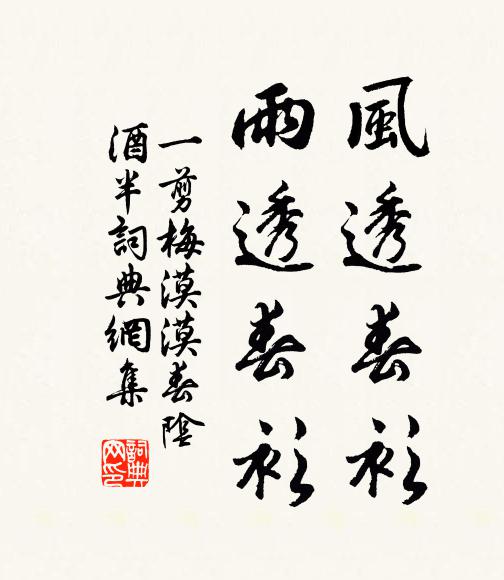 風透春衫
雨透春衫
一剪梅漠漠春陰
酒半詞典網集
詞典
网印